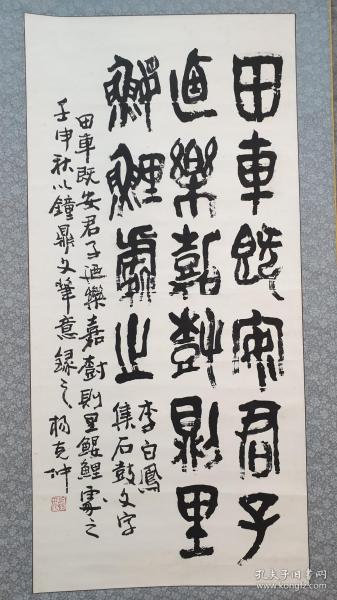 田車既安君子
迺樂嘉樹則里
鰥鯉處之
李白鳳
集石鼓文字
田車既安君子迺樂嘉樹則里鰥鯉處之
壬申秋以鐘鼎文筆意錄之 楊克冲
孔夫子旧书网